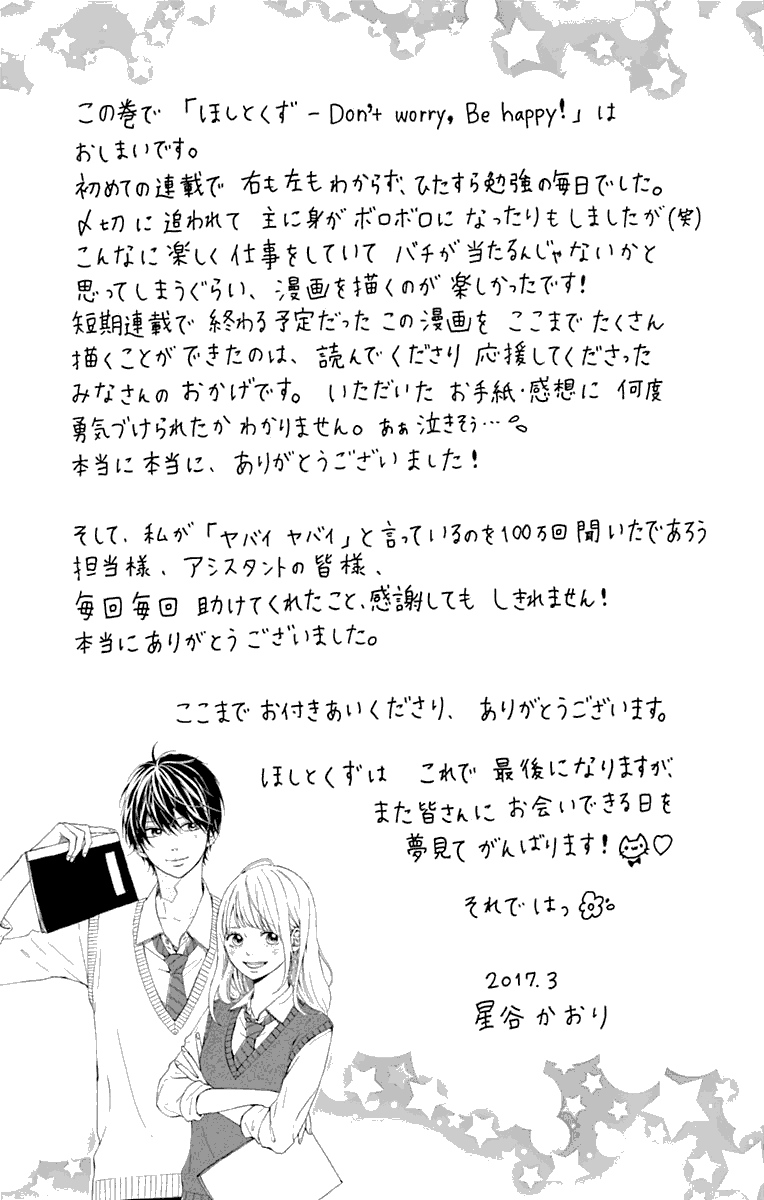 この巻で 「ほしとくず − Don't worry, Be happy!」は
おしまいです。
初めての連載で 右も左も わからず、ひたすら勉強の毎日でした。
〆切に 追われて 主に身が ボロボロに なったりもしましたが(笑)
こんなに 楽しく 仕事をしていて バチが 当たるんじゃないかと
思ってしまうぐらい、漫画を描くのが 楽しかったです!
短期連載で 終わる予定だった この漫画を ここまで たくさん
描くことが できたのは、読んでくださり 応援してくださった
みなさんの おかげです。 いただいた お手紙・感想に 何度
勇気づけられたか わかりません。 あぁ泣きそう…
本当に本当に、ありがとうございました!
そして、私が「ヤバイ ヤバイ」と言っているのを100万回 聞いたであろう
担当様、アシスタントの皆様、
毎回毎回 助けてくれたこと、感謝しても しきれません!
本当にありがとうございました。
ここまで お付きあいくださり、 ありがとうございます。
ほしとくずは これで 最後になりますが、
また皆さんに お会いできる日を
夢見て がんばります!♡
それでは っ
2017.3
星谷かおり